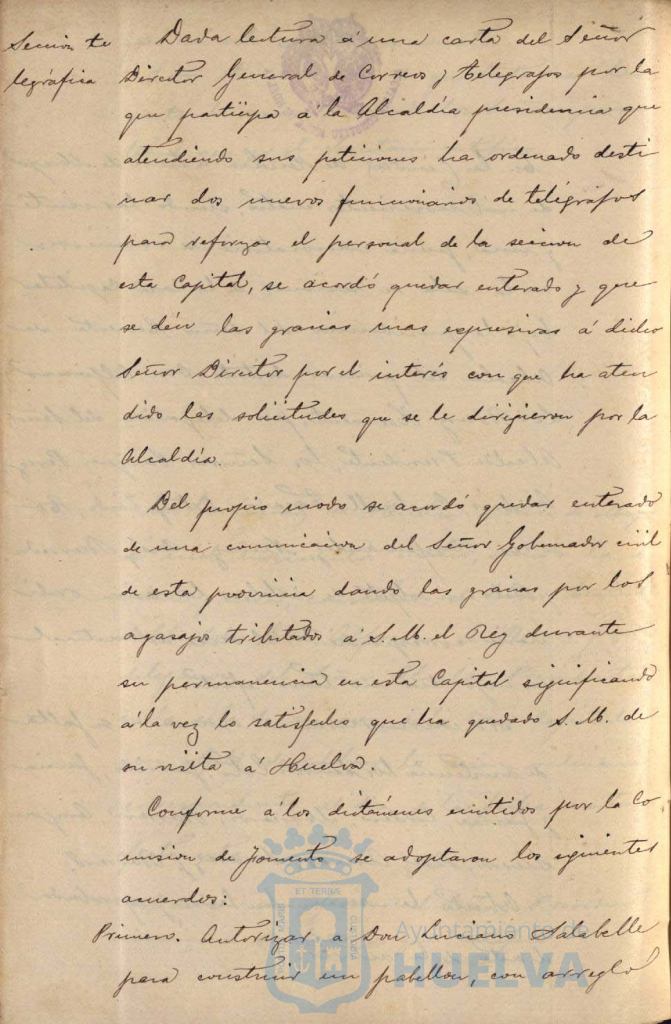 Sección te
legráfica
Dada lectura á una carta del Señor
Director General de Correos y Telegrafos por la
que participa á la Alcaldía presidencia que
atendiendo sus peticiones ha ordenado desti
nar dos nuevos funcionarios de telégrafos
para reforzar el personal de la seccion de
esta Capital, se acordó quedar enterado y que
se dén las gracias mas expresivas á dicho
Señor Director por el interés con que ha aten
dido las solicitudes que se le dirigieron por la
Alcaldía.
Del propio modo se acordó quedar enterado
de una comunicacion del Señor Gobernador civil
de esta provincia dando las gracias por los
agasajos tributados á S. M. el Rey durante
su permanencia en esta Capital significando
á la vez lo satisfecho que ha quedado S. M. de
su visita á Huelva.
Conforme á los dictámenes emitidos por la Co
mision de Fomento se adoptaron los siguientes
acuerdos:
Primero. Autorizar a Don Luciano Salabelle
para construir un pabellon, con arreglo
Ayuntamiento de
HUELVA